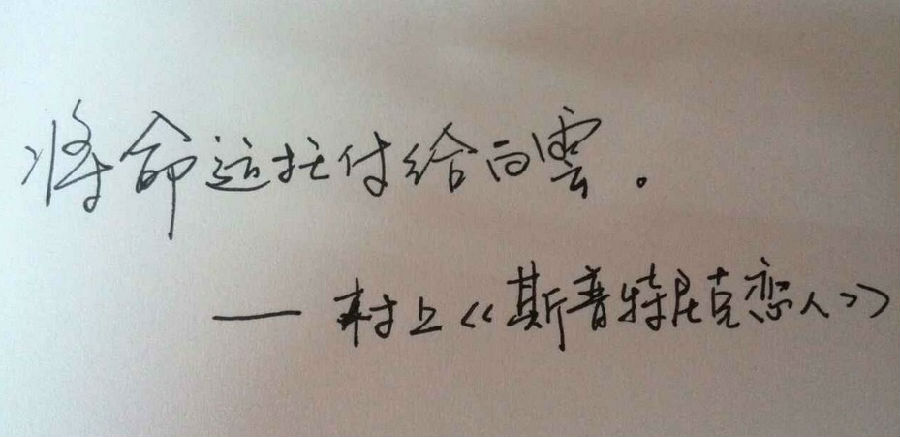 将命运托付给白雲。
——村上《斯普特尼克恋人》